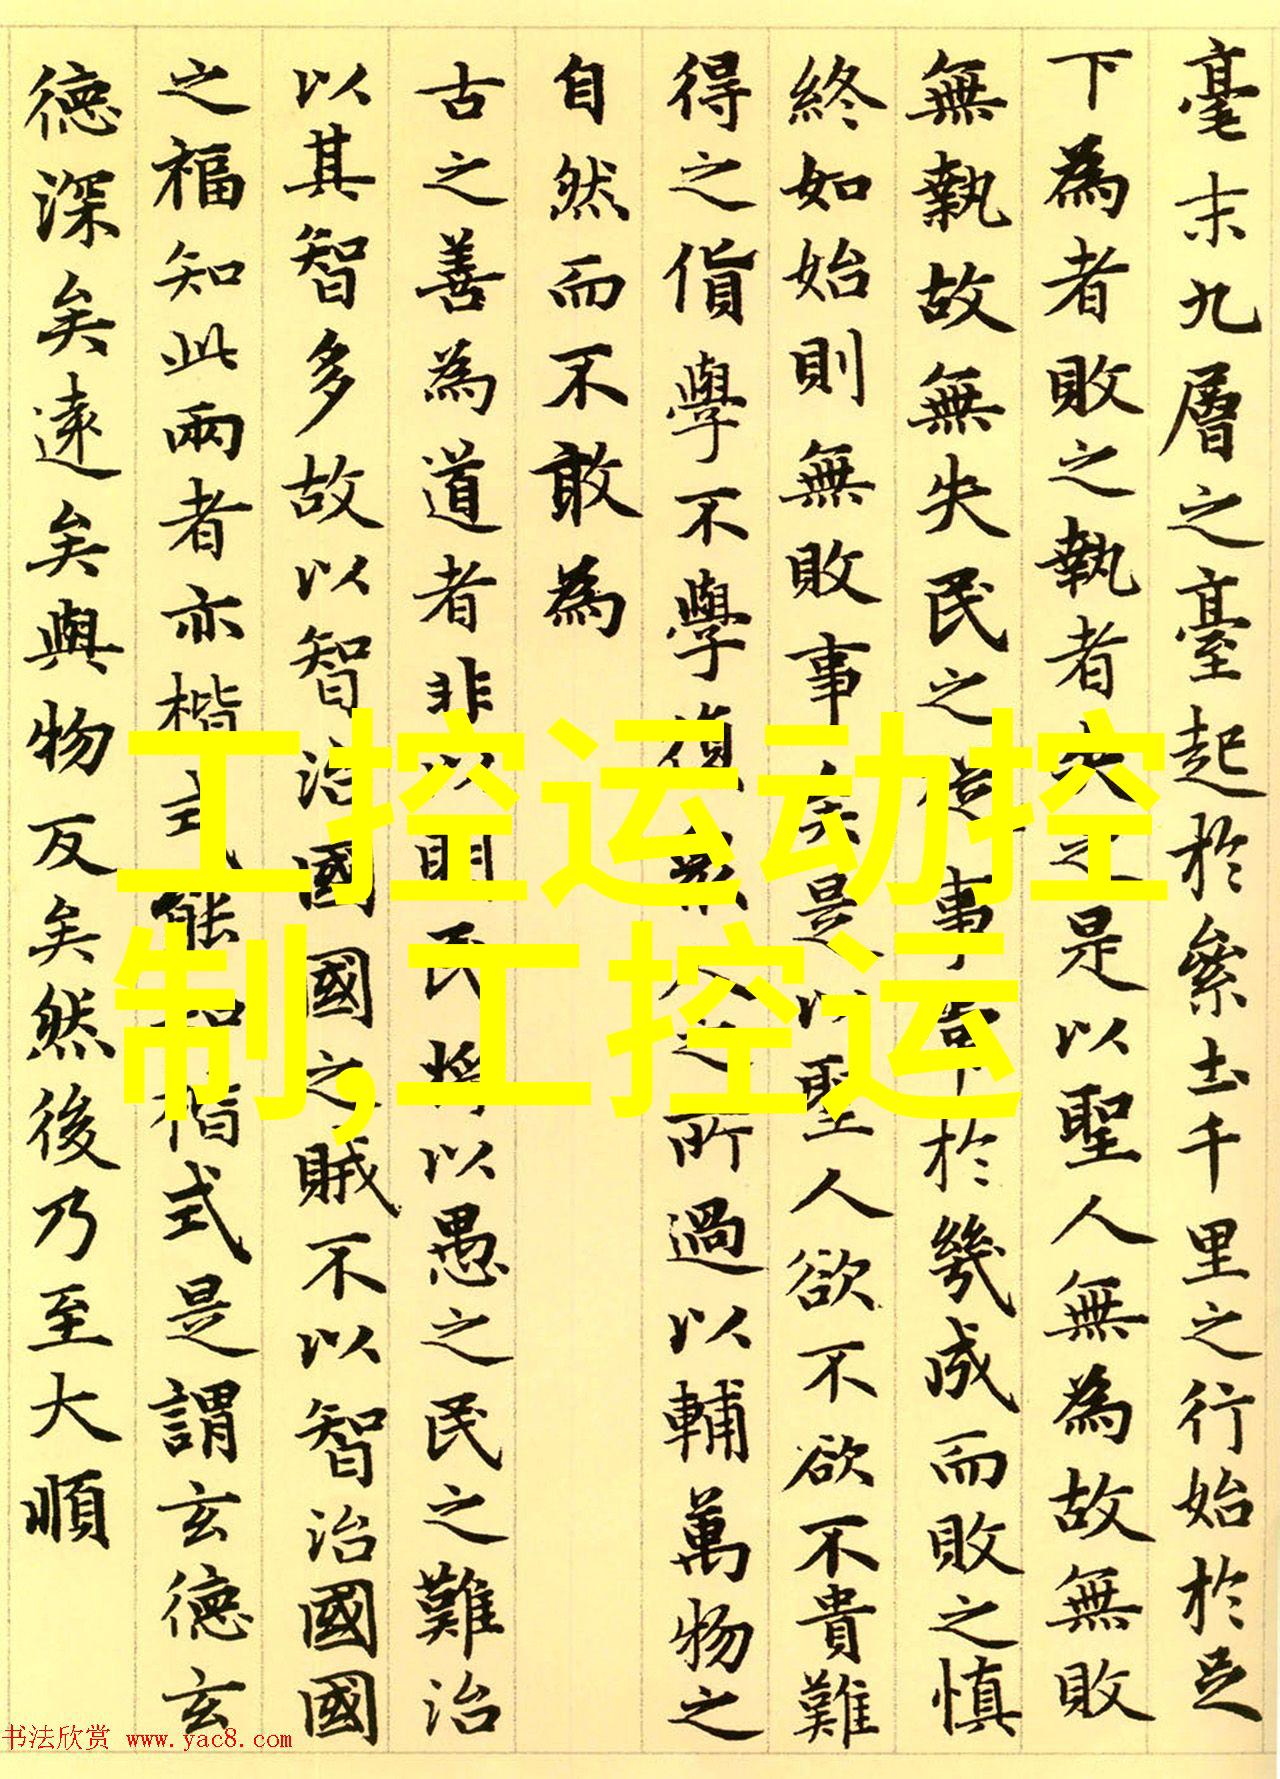 毫末九層之臺起於絫土千里之行始於足
下為者敗之執者失之是以聖人無為故無敗
無執故無失民之從事常於幾成而敗之慎
終如始則無敗事矣是以聖人欲不欲不貴難
得之貨學不學復眾人之所過以輔萬物之
自然而不敢為
古之善為道者非以明民將以愚之民之難治
以其智多故以智治國國之賊不以智治國國
之福知此兩者亦楷式能知楷式是謂玄德玄
德深矣遠矣與物反矣然後乃至大順
工控运动控
制,工控运
书法欣赏 www.yac8.com